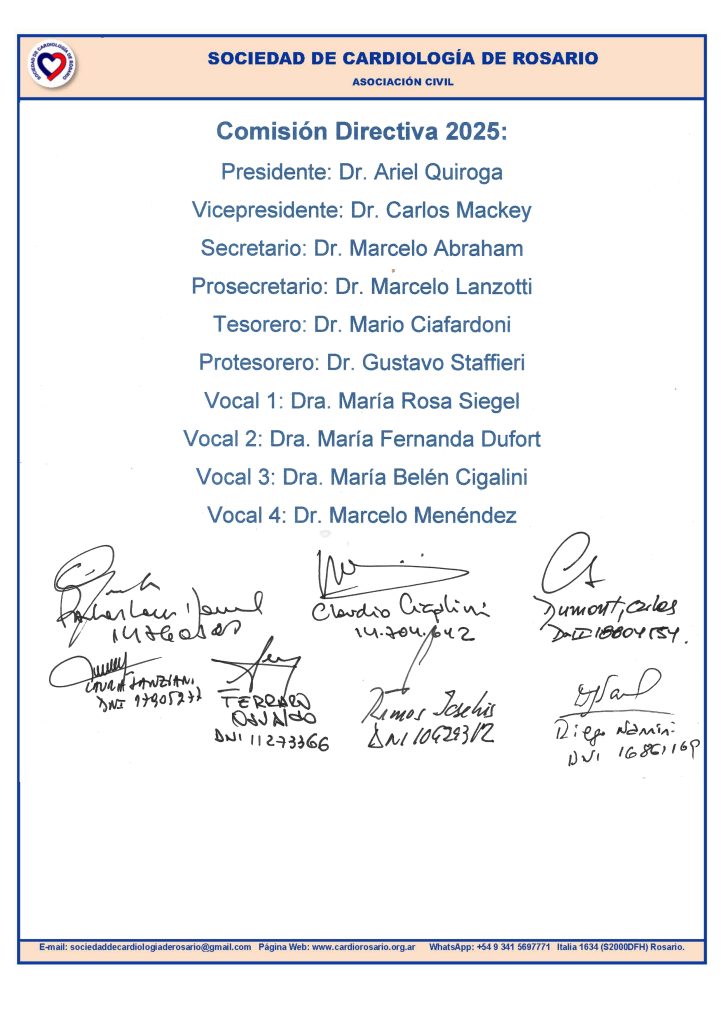 SOCIEDAD DE CARDIOLOGÍA DE ROSARIO
SOCIEDAD DE CARDIOLOGÍA DE ROSARIO
ASOCIACIÓN CIVIL
Comisión Directiva 2025:
Presidente: Dr. Ariel Quiroga
Vicepresidente: Dr. Carlos Mackey
Secretario: Dr. Marcelo Abraham
Prosecretario: Dr. Marcelo Lanzotti
Tesorero: Dr. Mario Ciafardoni
Protesorero: Dr. Gustavo Staffieri
Vocal 1: Dra. María Rosa Siegel
Vocal 2: Dra. María Fernanda Dufort
Vocal 3: Dra. María Belén Cigalini
Vocal 4: Dr. Marcelo Menéndez
Claudio
14.704.642
DUMONT, Carlos
DNI 18804154.
LAURA
DNI
OSVALDO
DNI 11273366
Ramos
DNI
Diego
DNI 16861169
E-mail: sociedaddecardiologiaderosario@gmail.com Página Web: www.cardiorosario.org.ar WhatsApp: +54 9 341 5697771 Italia 1634 (S2000DFH) Rosario.